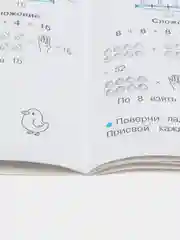 ложение
· 4 = 16
= 16
16
Сложе
8 + 8 + 8
= 32
По 8 взять
Поверни ла
Присвой кажд